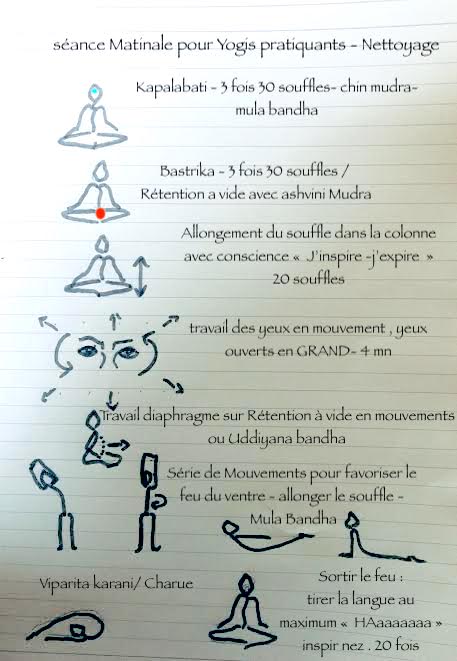 séance Matinale pour Yogis pratiquants - Nettoyage
Kapalabati - 3 fois 30 souffles- chin mudra-
mula bandha
Bastrika - 3 fois 30 souffles /
Rétention a vide avec ashvini Mudra
Allongement du souffle dans la colonne
avec conscience « J'inspire -j'expire »
20 souffles
travail des yeux en mouvement , yeux
ouverts en GRAND- 4 mn
Travail diaphragme sur Rétention à vide en mouvements
ou Uddiyana bandha
Série de Mouvements pour favoriser le
feu du ventre - allonger le souffle -
Mula Bandha
Viparita karani/ Charue
Sortir le feu :
tirer la langue au
maximum « HAaaaaaaa »
inspir nez . 20 fois